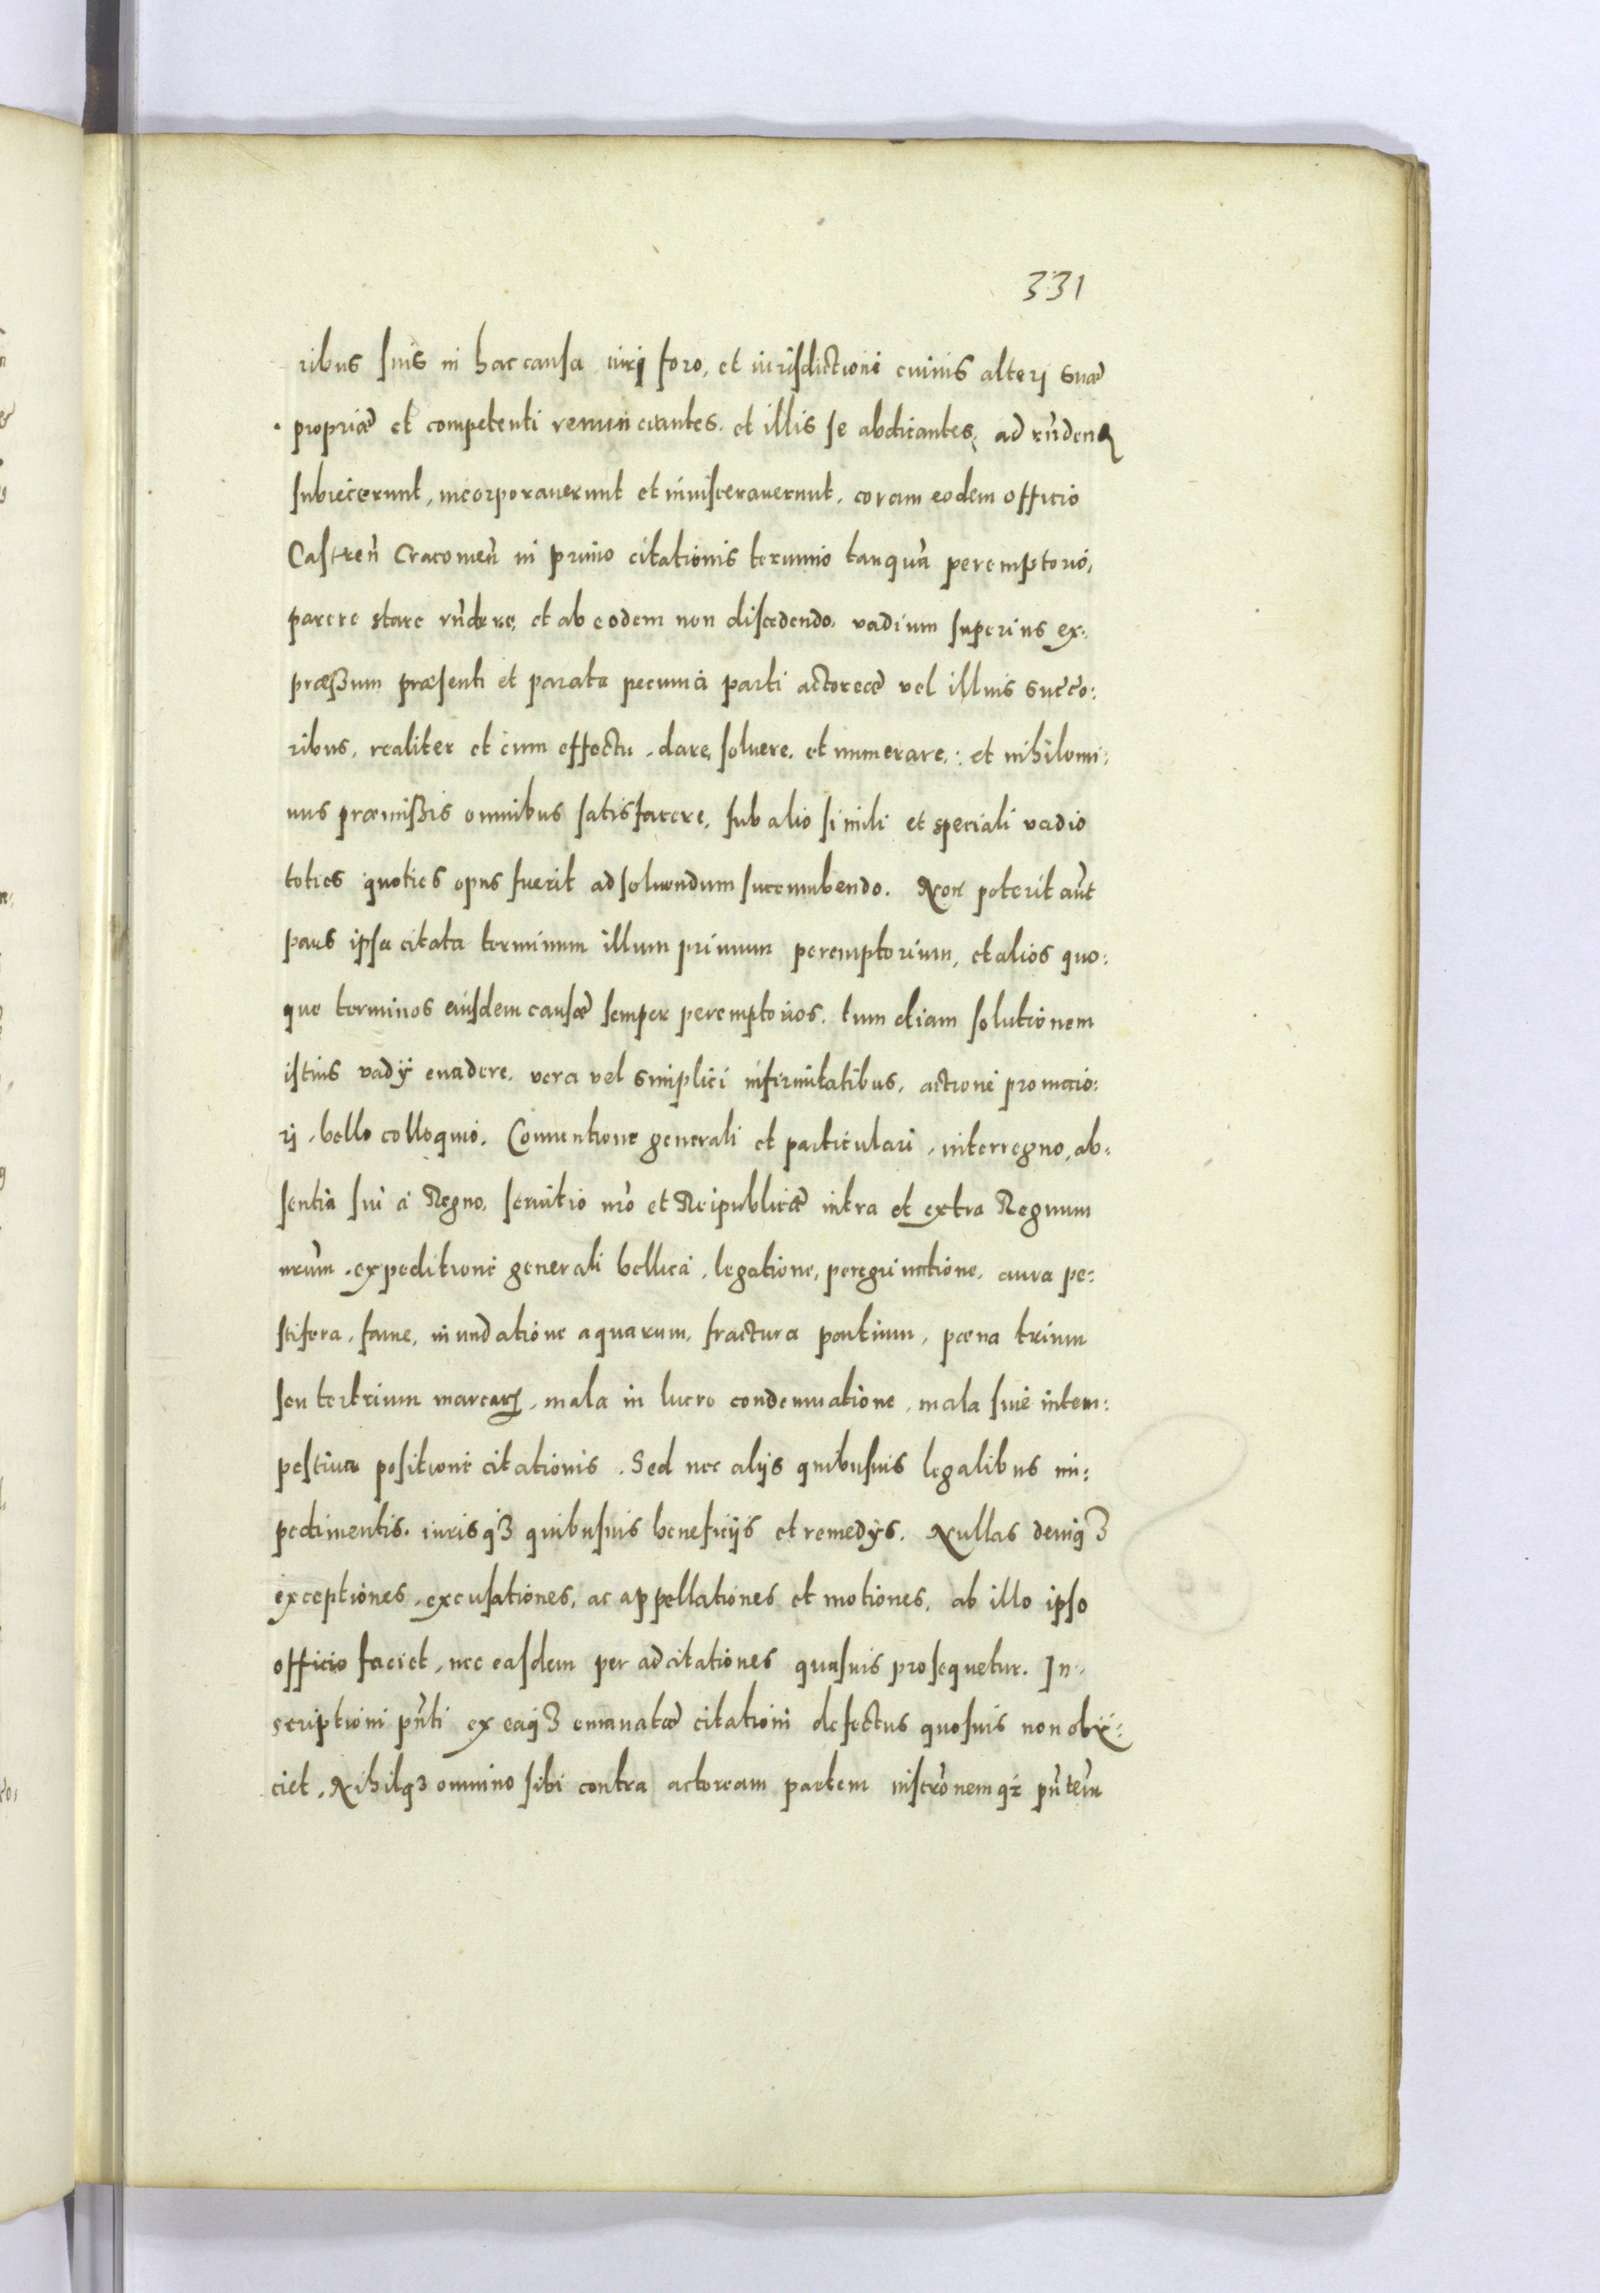 331
ribus suis in hac causa iurj foro, et iurisdictioni cuiuis alterj suæ
propriæ et competenti renunciantes. et illis se abdicantes, ad rn̄den
subiecerunt, incorporauerunt et inuiscerauerunt, coram eodem officio
Castren̄ Cracouien̄ in primo citationis termino tanquā peremptorio,
parere stare rn̄dere, et ab eodem non discedendo, vadium superius ex:
præßum præsenti et parata pecunia parti actoreæ vel illius succo:
ribus, realiter et cum effectu, dare, soluere, et numerare,: et nihilomi:
nus præmißis omnibus satisfacere, sub alio simili et speciali vadio
toties quoties opus fuerit ad soluendum succumbendo. Non poterit aūt
pars ipsa citata terminum illum primum peremptorium, et alios quo:
que terminos eiusdem causæ semper peremptorios, tum etiam solutionem
istius vadÿ euadere, vera vel simplici infirmitatibus, actione pro maio:
rj, bello colloquio, Conuentione generali et particulari, interregno, ab:
sentia sui a Regno, seruitio nr̄o et Reipublicæ intra et extra Regnum
nr̄um, expeditione generali bellica, legatione, peregrinatione, aura pe:
stifera, fame, inundatione aquarum, fractura pontium, pœna trium
seu ter trium marcarꝝ, mala in lucro condemnatione, mala siue intem:
pestiua positione citationis. Sed nec alijs quibusuis legalibus im:
pedimentis, iurisqꝫ quibusuis beneficijs et remedÿs. Nullas deniqꝫ
exceptiones, excusationes, ac appellationes et motiones, ab illo ipso
officio faciet, nec easdem per adcitationes quasuis prosequetur. In:
scriptioni pn̄ti ex eaqꝫ emanatæ citationi defectus quosuis non obij:
ciet, Nihilqꝫ omnino sibi contra actoream partem inscrōnemqꝫ pn̄tem